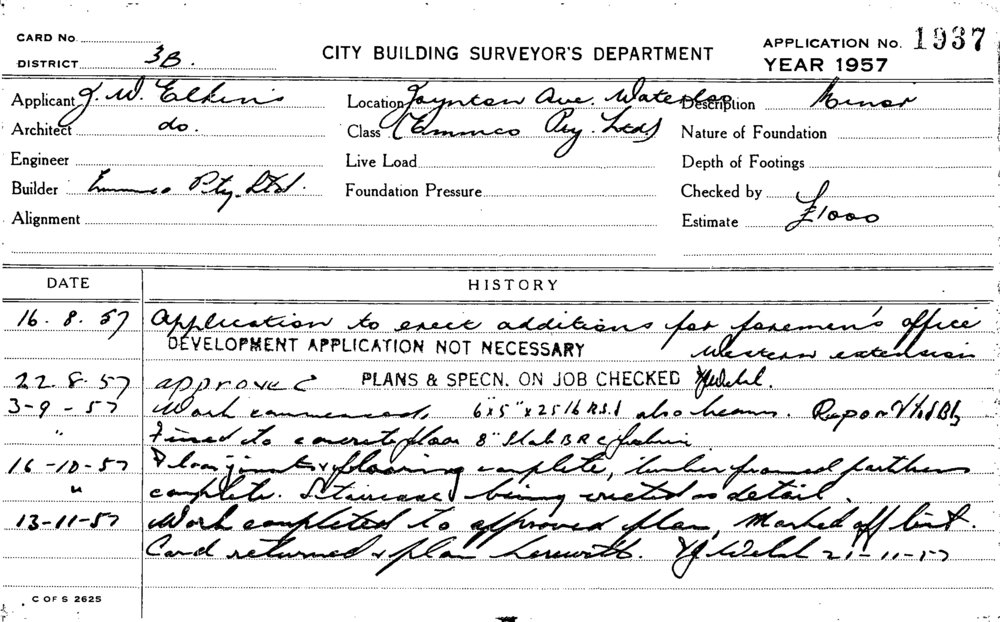 CARD No.
DISTRICT 3B.
CITY BUILDING SURVEYOR'S DEPARTMENT
APPLICATION No. 1937
YEAR 1957
Applicant J. W. Elkins Location Joynton Ave. Waterloo Description Minor
Architect do. Class (Emmco Pty. Ltd) Nature of Foundation
Engineer Live Load Depth of Footings
Builder Emmco Pty. Ltd. Foundation Pressure Checked by
Alignment Estimate £1000
DATE HISTORY
16. 8. 57 Application to erect additions for foremen's office
DEVELOPMENT APPLICATION NOT NECESSARY Western extension
22. 8. 57 approved PLANS & SPECN. ON JOB CHECKED
3-9-57 Work commenced, 6"x5"x25lb R.S.J also beams.
" Fixed to concrete floor 8" slab
16-10-57 Floor joints & flooring complete, timber framed partitions
" complete. Staircase being erected as detail.
13-11-57 Work completed to approved plan, Marked off list.
Card returned & plan herewith. Welsh 21-11-57
C OF S 2625